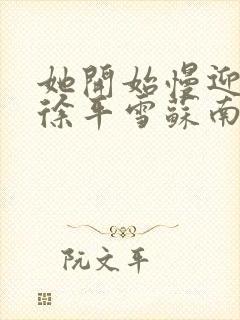 她開始慢迎
徐平雪蘇南
阮文平